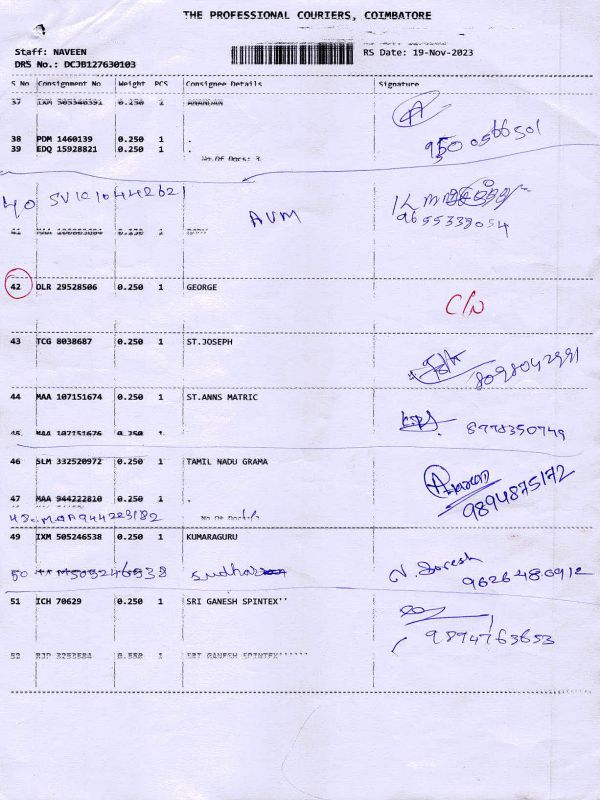 THE PROFESSIONAL COURIERS, COIMBATORE
Staff: NAVEEN
DRS No.: DCJB127630103
RS Date: 19-Nov-2023
S No Consignment No Weight PCS Consignee Details Signature
37 IXM 505340391 0.250 1 ANANDAN
38 PDM 1460139 0.250 1 .
39 EDQ 15928821 0.250 1 .
9500566501
No.Of Docs: 3
40 AVM
9655338054
41 0.250 1
42 DLR 29528506 0.250 1 GEORGE
C/N
43 TCG 8038687 0.250 1 ST.JOSEPH
8098042991
44 MAA 107151674 0.250 1 ST.ANNS MATRIC
45 MAA 107151676 0.250 1
8778350749
46 SLM 332520972 0.250 1 TAMIL NADU GRAMA
47 MAA 944222810 0.250 1 .
9894875172
48 MAA 944223182
49 IXM 505246538 0.250 1 KUMARAGURU
50 505246938 Sudhar
9626480912
51 ICH 70629 0.250 1 SRI GANESH SPINTEX''
9894763653
52 0.250 1 SRI GANESH SPINTEX''''''